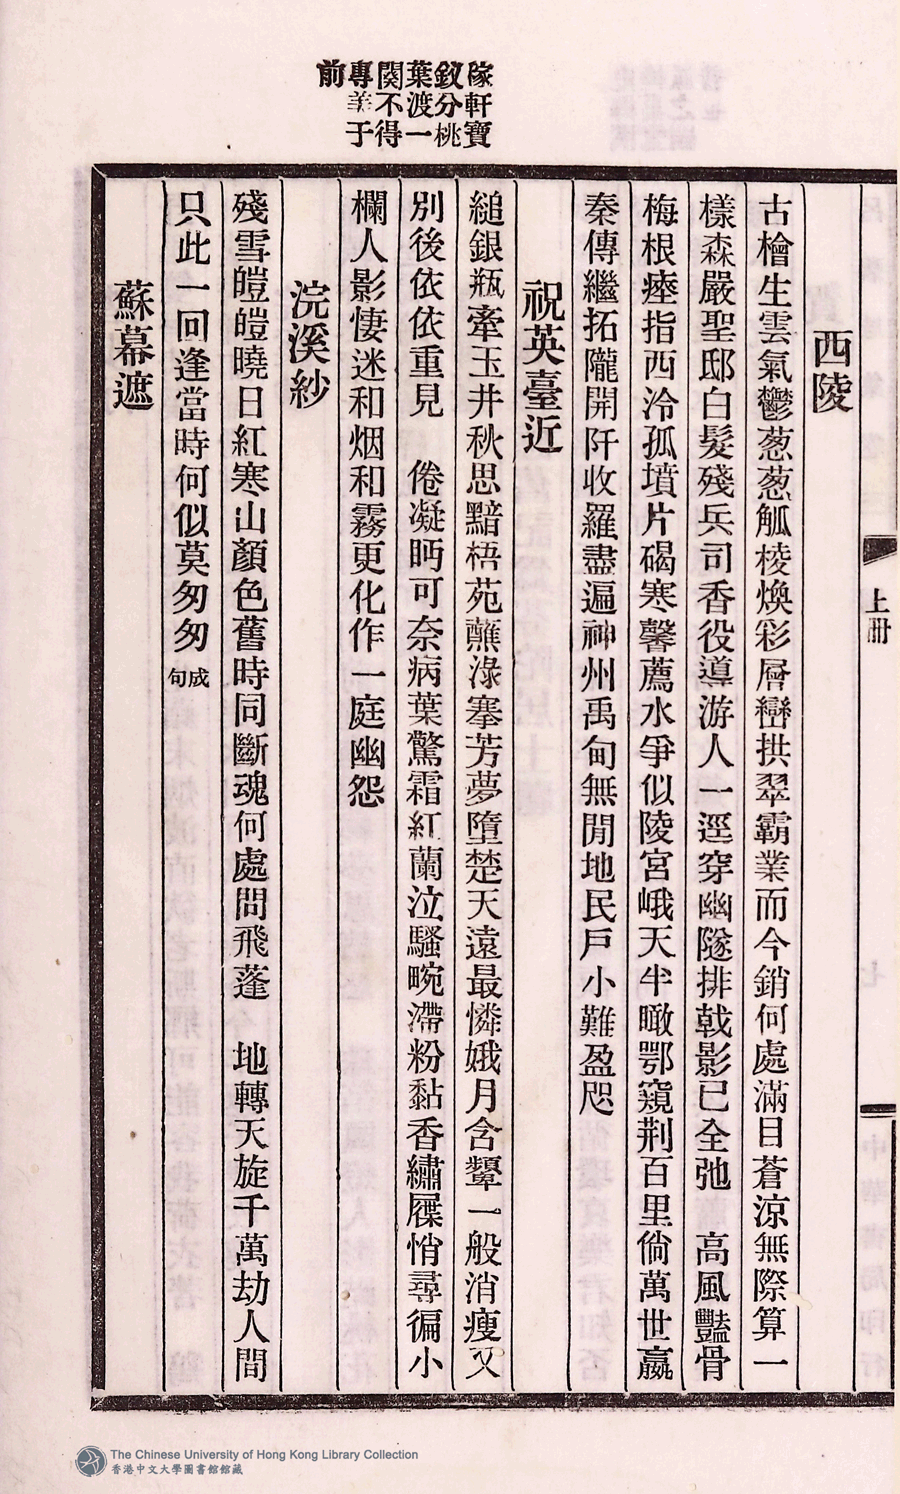 稼軒寶
釵分桃
葉渡一
闋不得
專美于
前
西陵
古檜生雲氣鬱葱葱觚棱煥彩層巒拱翠霸業而今銷何處滿目蒼涼無際算一
樣森嚴聖邸白髮殘兵司香役導游人一逕穿幽隧排戟影已全弛　高風豔骨
梅根瘞指西泠孤墳片碣寒馨薦水爭似陵宮峨天半瞰鄂窺荆百里倘萬世嬴
秦傳繼拓隴開阡收羅盡遍神州禹甸無閒地民戶小難盈咫
祝英臺近
縋銀瓶牽玉井秋思黯梧苑蘸淥搴芳夢墮楚天遠最憐娥月含顰一般消瘦又
別後依依重見　倦凝眄可奈病葉驚霜紅蘭泣騷畹滯粉黏香繡屧悄尋徧小
欄人影悽迷和烟和霧更化作一庭幽怨
浣溪紗
殘雪皚皚曉日紅寒山顏色舊時同斷魂何處問飛蓬　地轉天旋千萬劫人間
只此一回逢當時何似莫匆匆成句
蘇幕遮
上冊
The Chinese University of Hong Kong Library Collection
香港中文大學圖書館館藏